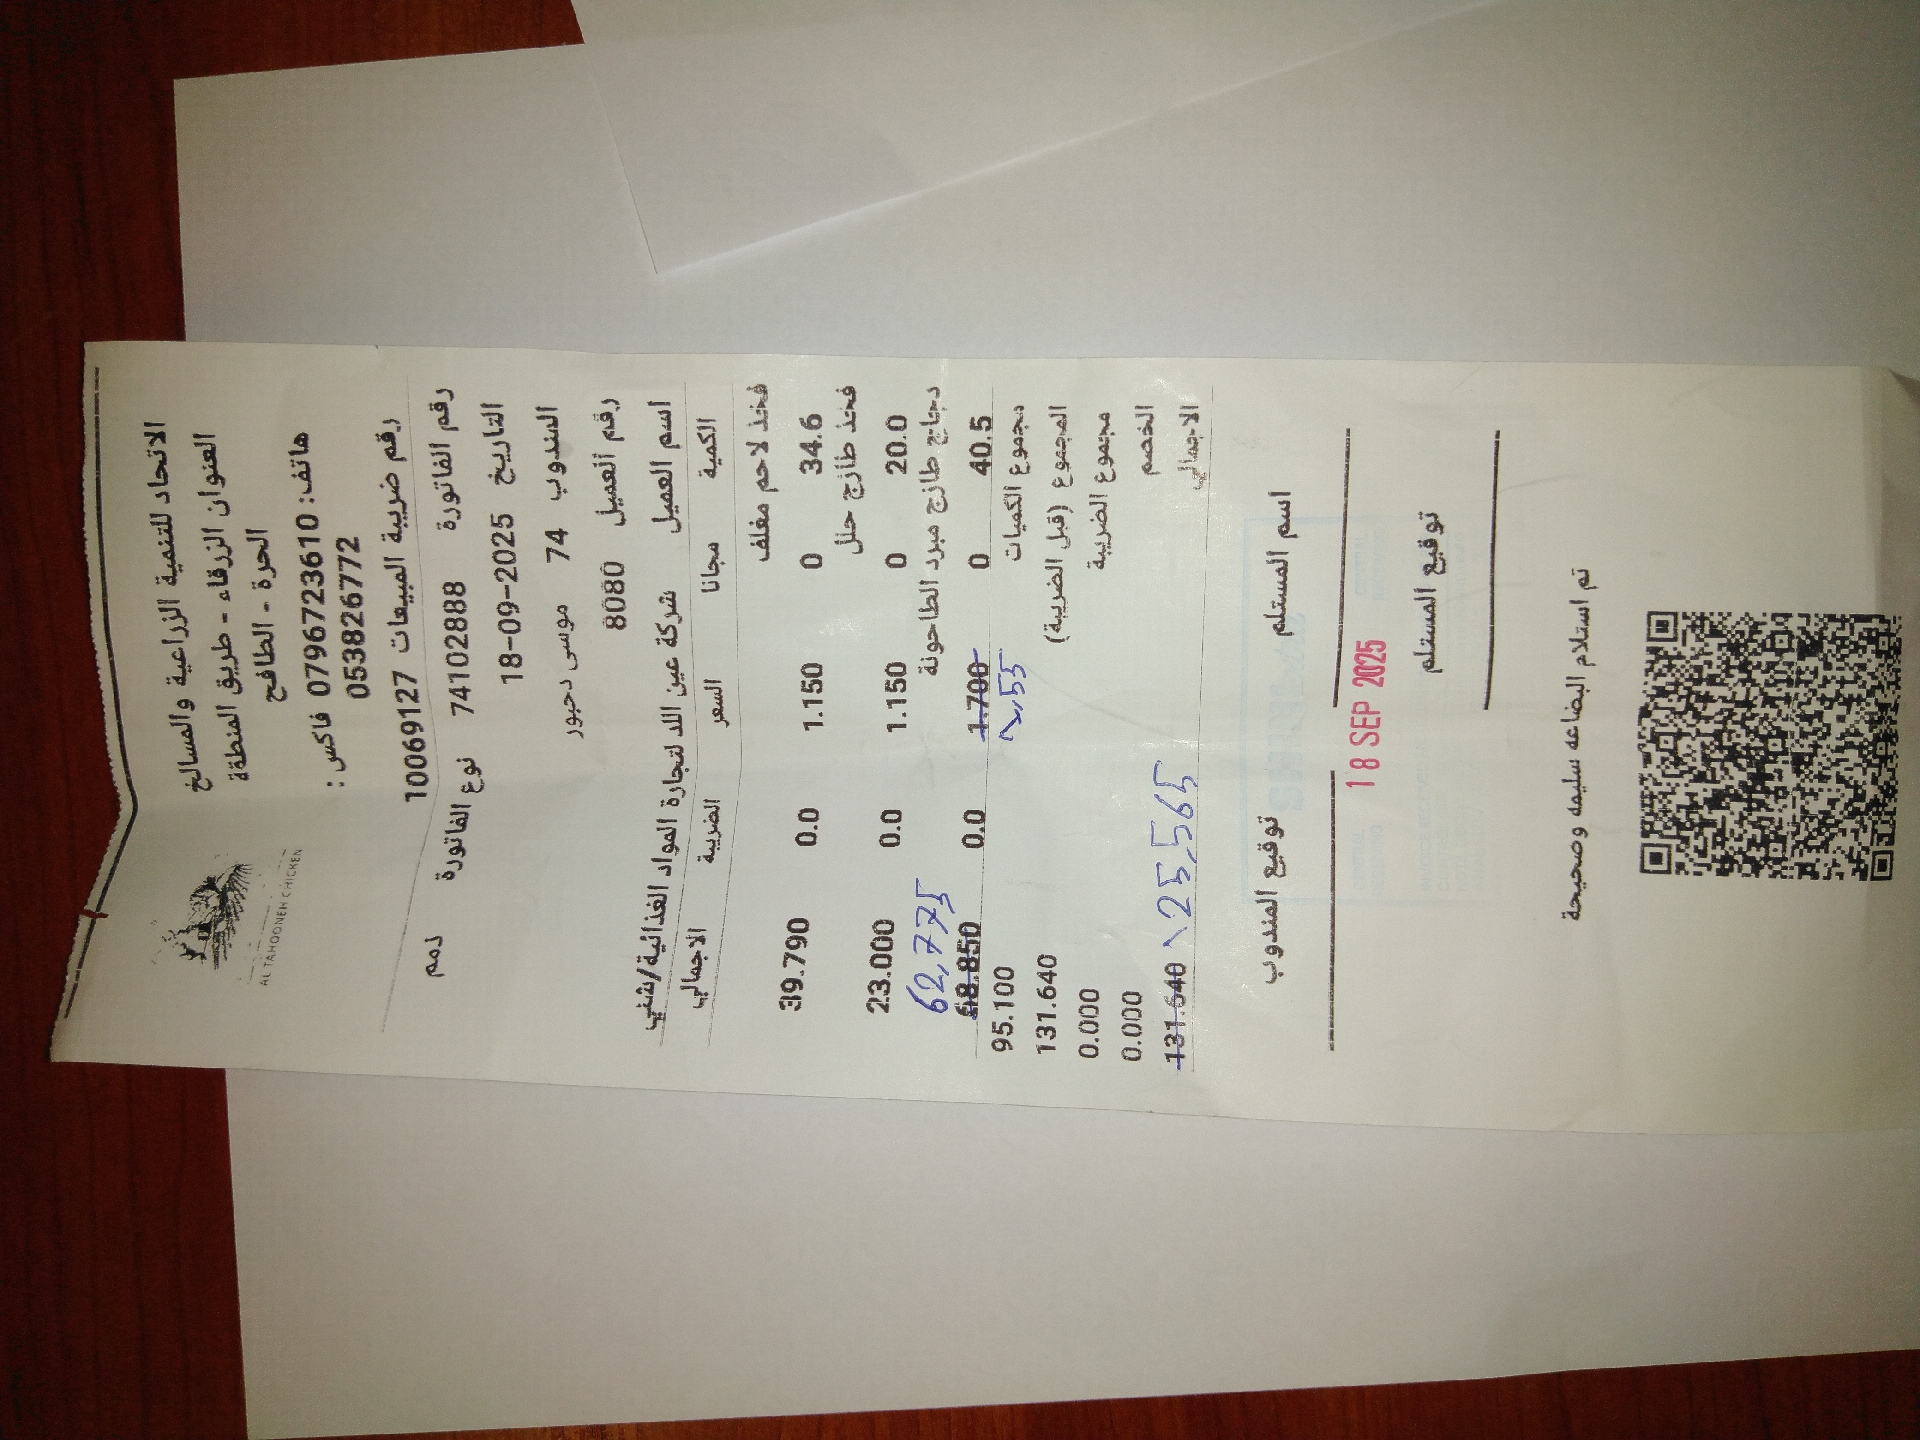 AL TAHOONEH CHICKEN
الاتحاد للتنمية الزراعية والمسالخ
العنوان الزرقاء - طريق المنطقة
الحرة - الطافح
هاتف: 0796723610 فاكس :
0538826772
رقم ضريبة المبيعات 10069127
رقم الفاتورة 74102888 نوع الفاتورة ذمم
التاريخ 18-09-2025
المندوب 74 موسى دحبور
رقم العميل 8080
اسم العميل شركة عين اللد لتجارة المواد الغذائية/شفي
الكمية مجانا السعر الضريبة الاجمالي
فخذ لاحم مغلف
34.6 0 1.150 0.0 39.790
فخذ طازج حلل
20.0 0 1.150 0.0 23.000
دجاج طازج مبرد الطاحونة 62,775
40.5 0 1.700 0.0 68.850
1,55
مجموع الكميات 95.100
المجموع (قبل الضريبة) 131.640
مجموع الضريبة 0.000
الخصم 0.000
الاجمالي 131.640 125,565
اسم المستلم توقيع المندوب
18 SEP 2025
توقيع المستلم
تم استلام البضاعه سليمه وصحيحة